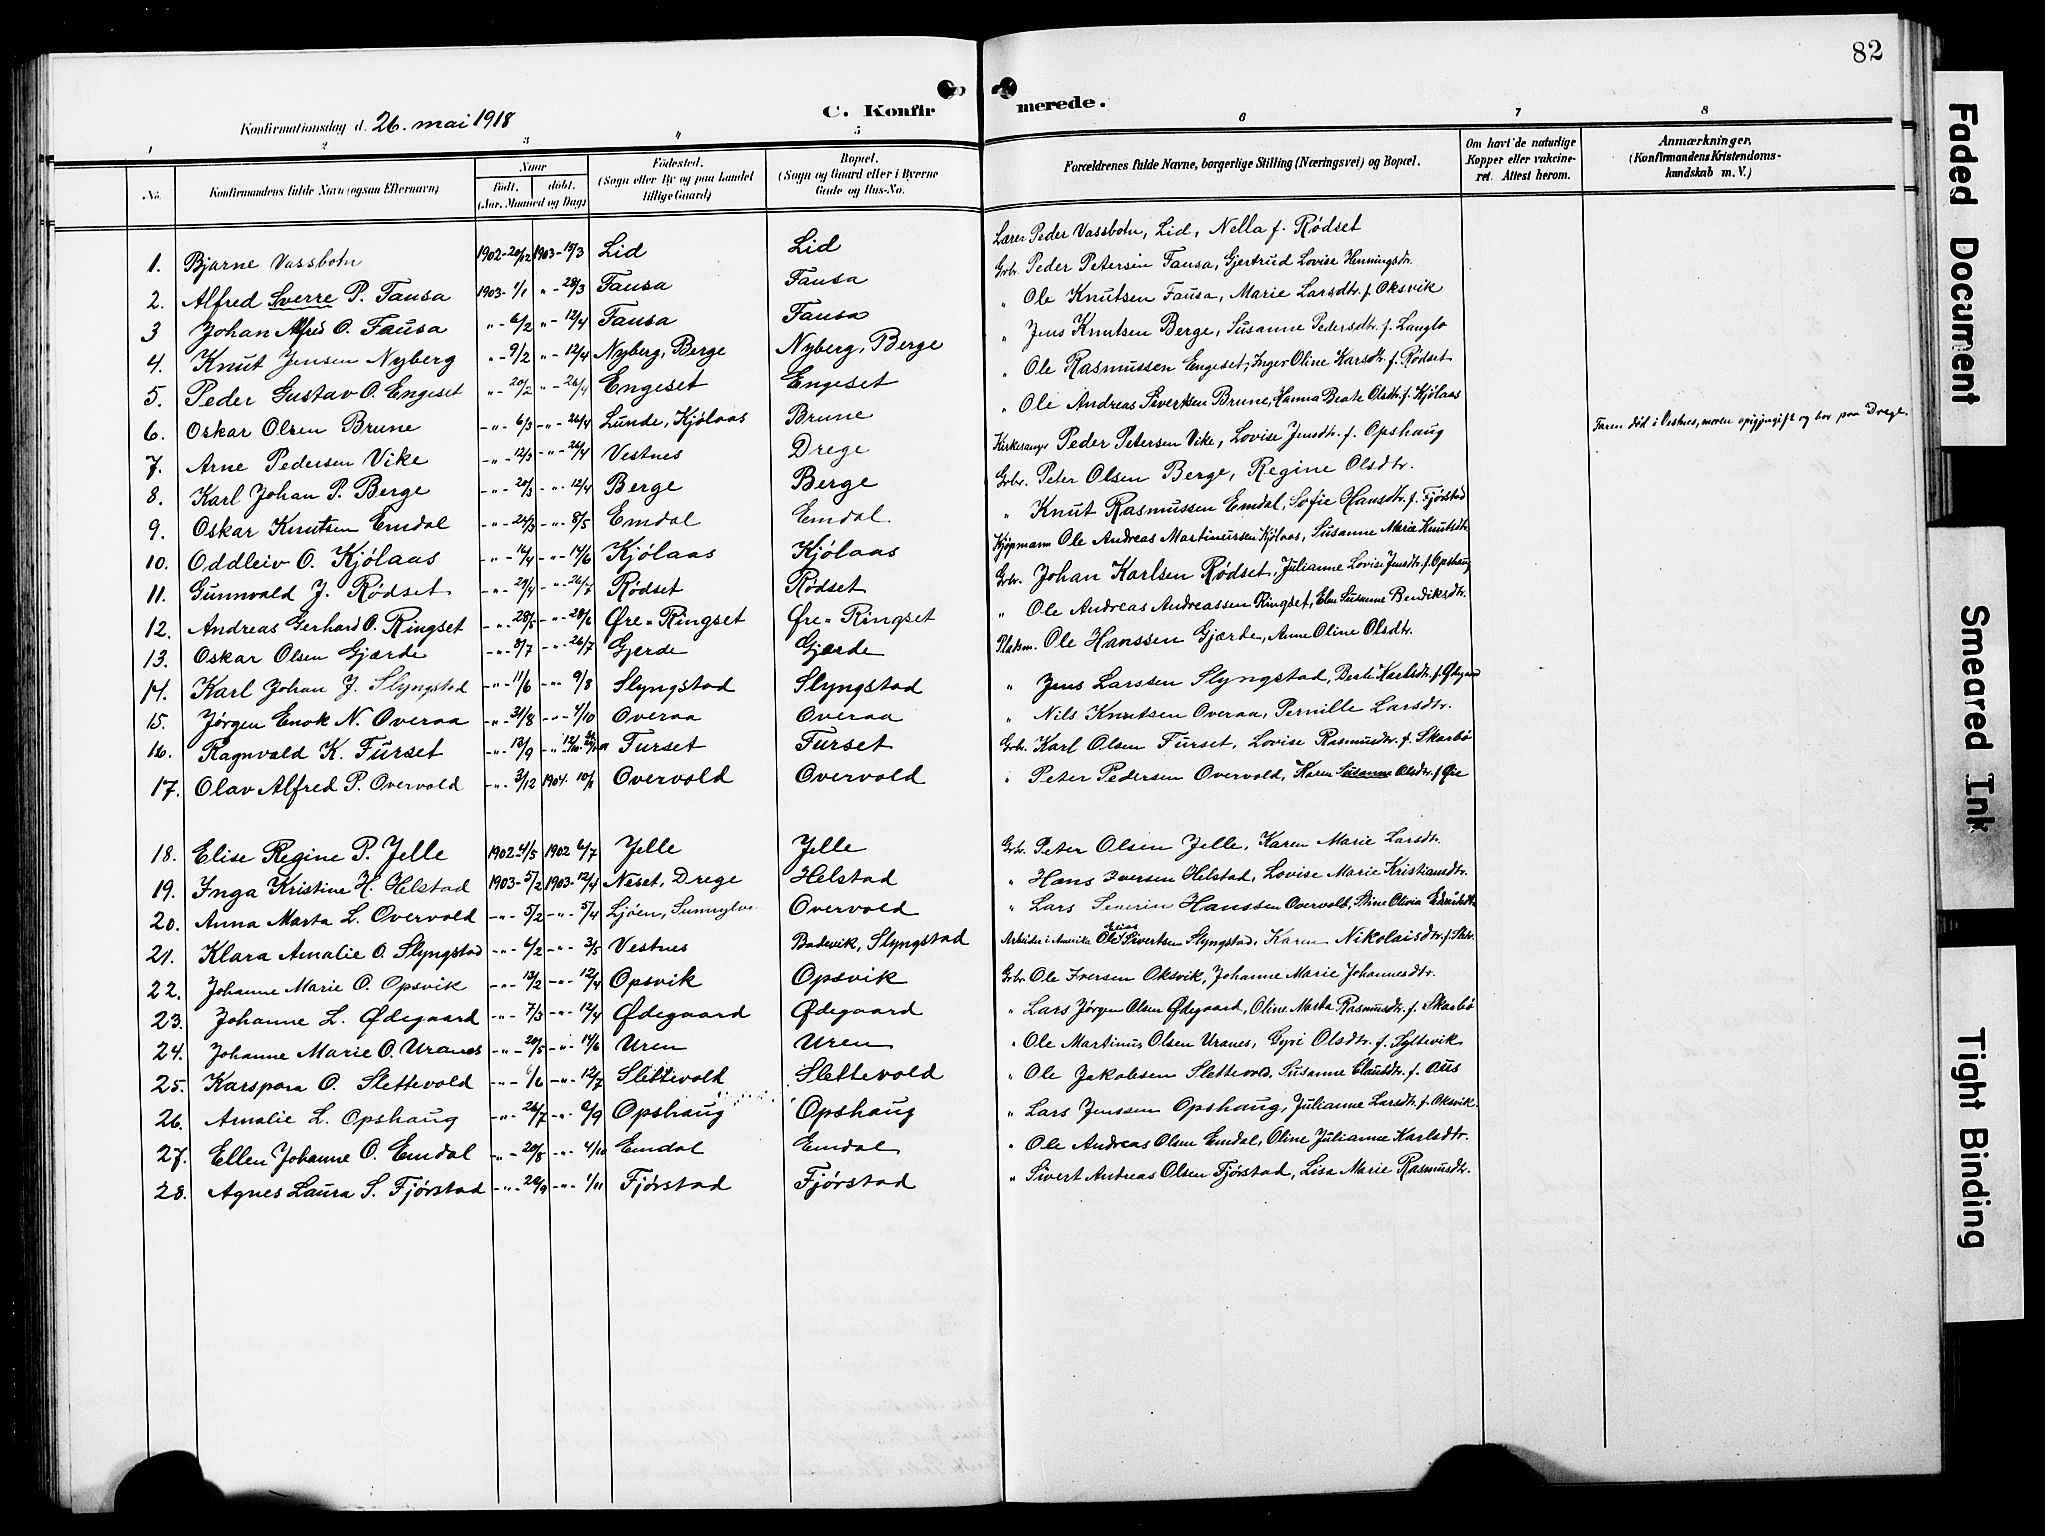 82
C. Konfirmerede.
Konfirmationsdag d. 26. mai 1918
1 2 3 4 5 6 7 8
No. Konfirmandens fulde Navn (ogsaa Efternavn) Naar født. døbt. (Aar, Maaned og Dag) Fødested. (Sogn eller By og paa Landet tillige Gaard) Bopæl. (Sogn og Gaard eller i Byerne Gade og Hus-No. Forældrenes fulde Navne, borgerlige Stilling (Næringsvei) og Bopæl. Om havt de naturlige Kopper eller vakcineret. Attest herom. Anmærkninger. (Konfirmandens Kristendomskundskab m. V.)
1. Bjarne Vassbotn 1902-20/12 1903-15/3 Lid Lid Lærer Peder Vassbotn, Lid, Nella f. Rødset
2. Alfred Sverre P. Fausa 1903-1/1 " 28/3 Fausa Fausa Gbr. Peder Petersen Fausa, Gjertrud Lovise Henningsdtr.
3 Johan Alfred O. Fausa " 6/2 " 12/4 Fausa Fausa " Ole Knutsen Fausa, Marie Larsdtr. f. Oksvik
4. Knut Jensen Nyberg " 9/2 " 12/4 Nyberg, Berge Nyberg, Berge " Jens Knutsen Berge, Susanne Pedersdtr. f. Langlo
5. Peder Gustav O. Engeset " 20/2 " 26/4 Engeset Engeset " Ole Rasmussen Engeset, Inger Oline Larsdtr. f. Rødset
6. Oskar Olsen Brune " 6/3 " 26/4 Lunde, Kjølaas Brune " Ole Andreas Siverksen Brune, Hanna Beate Olsdtr. f. Kjölaas
7. Arne Pedersen Vike " 12/3 " 26/4 Vestnes Drege Kirkesanger Peder Petersen Vike, Lovise Jensdtr. f. Opshaug Faren död i Vestnes, moren opigjengift og bor paa Drege.
8. Karl Johan P. Berge " 20/3 " 12/4 Berge Berge Gbr. Peter Olsen Berge, Regine Olsdtr.
9. Oskar Knutsen Emdal " 24/3 " 8/5 Emdal Emdal. " Knut Rasmussen Emdal, Sofie Hansdtr. f. Fjørstad
10. Oddleiv O. Kjölaas " 16/4 " 14/6 Kjölaas Kjölaas Kjøpmann Ole Andreas Martinussen Kjölaas, Susanne Marie Knutsdtr.
11. Gunnvald J. Rødset " 29/4 " 26/7 Rødset Rødset Gbr. Johan Karlsen Rødset, Julianne Lovise Jensdtr. f. Opshaug
12. Andreas Gerhard O. Ringset " 28/5 " 28/6 Øre-Ringset Øre-Ringset " Ole Andreas Andreassen Ringset, Elen Susanne Bendiksdtr.
13. Oskar Olsen Gjærde " 8/7 " 26/7 Gjerde Gjerde Pladsm. Ole Hanssen Gjærde, Anne Oline Olsdtr.
14. Karl Johan J. Slyngstad " 11/6 " 9/8 Slyngstad Slyngstad " Jens Larssen Slyngstad, Berte Karlsdtr. f.
15. Jørgen Enok N. Overaa " 31/8 " 4/10 Overaa Overaa " Nils Knutsen Overaa, Pernille Larsdtr.
16. Ragnvald K. Furset " 13/9 " Furset Furset Gbr. Karl Olsen Furset, Lovise Rasmusdtr. f. Skarbö
17. Olav Alfred P. Overvold " 3/12 1904 10/1 Overvold Overvold " Peter Pedersen Overvold, Karen Susanne Olsdtr. f. Øie
18. Elise Regine P. Jelle 1902-4/5 1902 6/7 Jelle Jelle Gbr. Peter Olsen Jelle, Karen Marie Larsdtr.
19. Inga Kristine H. Helstad 1903-5/2 1903-12/4 Neset, Drege Helstad " Hans Iversen Helstad, Lovise Marie Kristiansdtr.
20. Anna Marta L. Overvold " 5/2 " 5/4 Ljöen, Sunnylven Overvold " Lars Severin Hanssen Overvold, Stine Olivia Edvardsdtr.
21. Klara Amalie O. Slyngstad " 6/2 " 3/5 Vestnes Badevik, Slyngstad Arbeider i Amerika Ole Elias Sivertsen Slyngstad, Karen Nikolaisdtr. f.
22. Johanne Marie O. Opsvik " 13/2 " 12/4 Opsvik Opsvik Gbr Ole Iversen Oksvik, Johanne Marie Johannesdtr.
23. Johanne L. Ødegaard " 7/3 " 12/4 Ødegaard Ødegaard " Lars Jørgen Olsen Ødegaard, Oline Marta Rasmusdtr. f. Skarbö
24. Johanne Marie O. Uranes " 20/5 " 14/6 Uren Uren " Ole Martinus Olsen Uranes, Gyri Olsdtr. f. Syltevik
25. Karspara O. Slettevold " 1/6 " 12/7 Slettevold Slettevold " Ole Jakobsen Slettevold, Susanne Clausdtr. f. Aus
26. Amalie L. Opshaug " 26/7 " 6/9 Opshaug Opshaug " Lars Jenssen Opshaug, Julianne Larsdtr. f. Oksvik.
27. Ellen Johanne O. Emdal " 20/8 " 4/10 Emdal Emdal " Ole Andreas Olsen Emdal, Oline Julianne Karlsdtr.
28. Agnes Laura S. Fjörstad " 20/9 " 1/11 Fjörstad Fjörstad " Sivert Andreas Olsen Fjörstad, Lisa Marie Rasmusdtr.
Faded Document
Smeared Ink
Tight Binding